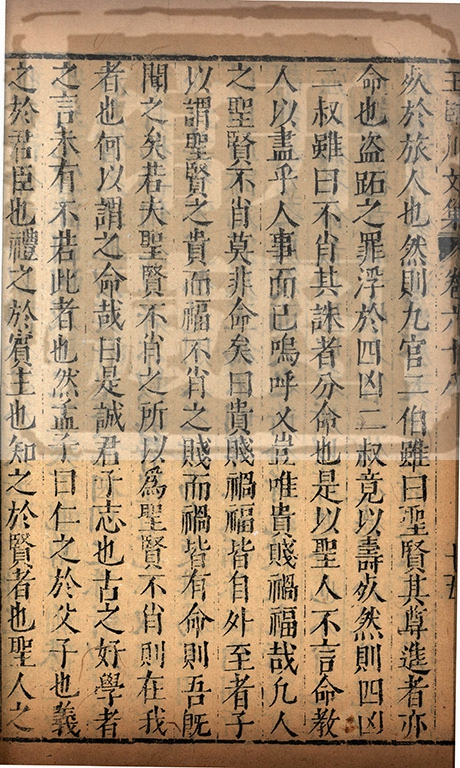 王臨川文集 卷六十八 十五
死於旅人也然則九官二伯雖曰聖賢其尊進者亦
命也盗跖之罪浮於四凶二叔竟以壽死然則四凶
二叔雖曰不肖其誅者分命也是以聖人不言命教
人以盡乎人事而已嗚呼又豈唯貴賤禍福哉凡人
之聖賢不肖莫非命矣曰貴賤禍福皆自外至者子
以謂聖賢之貴而福不肖之賤而禍皆有命則吾旣
聞之矣若夫聖賢不肖之所以爲聖賢不肖則在我
者也何以謂之命哉曰是誠君子志也古之好學者
之言未有不若此者也然孟子曰仁之於父子也義
之於君臣也禮之於賓主也知之於賢者也聖人之